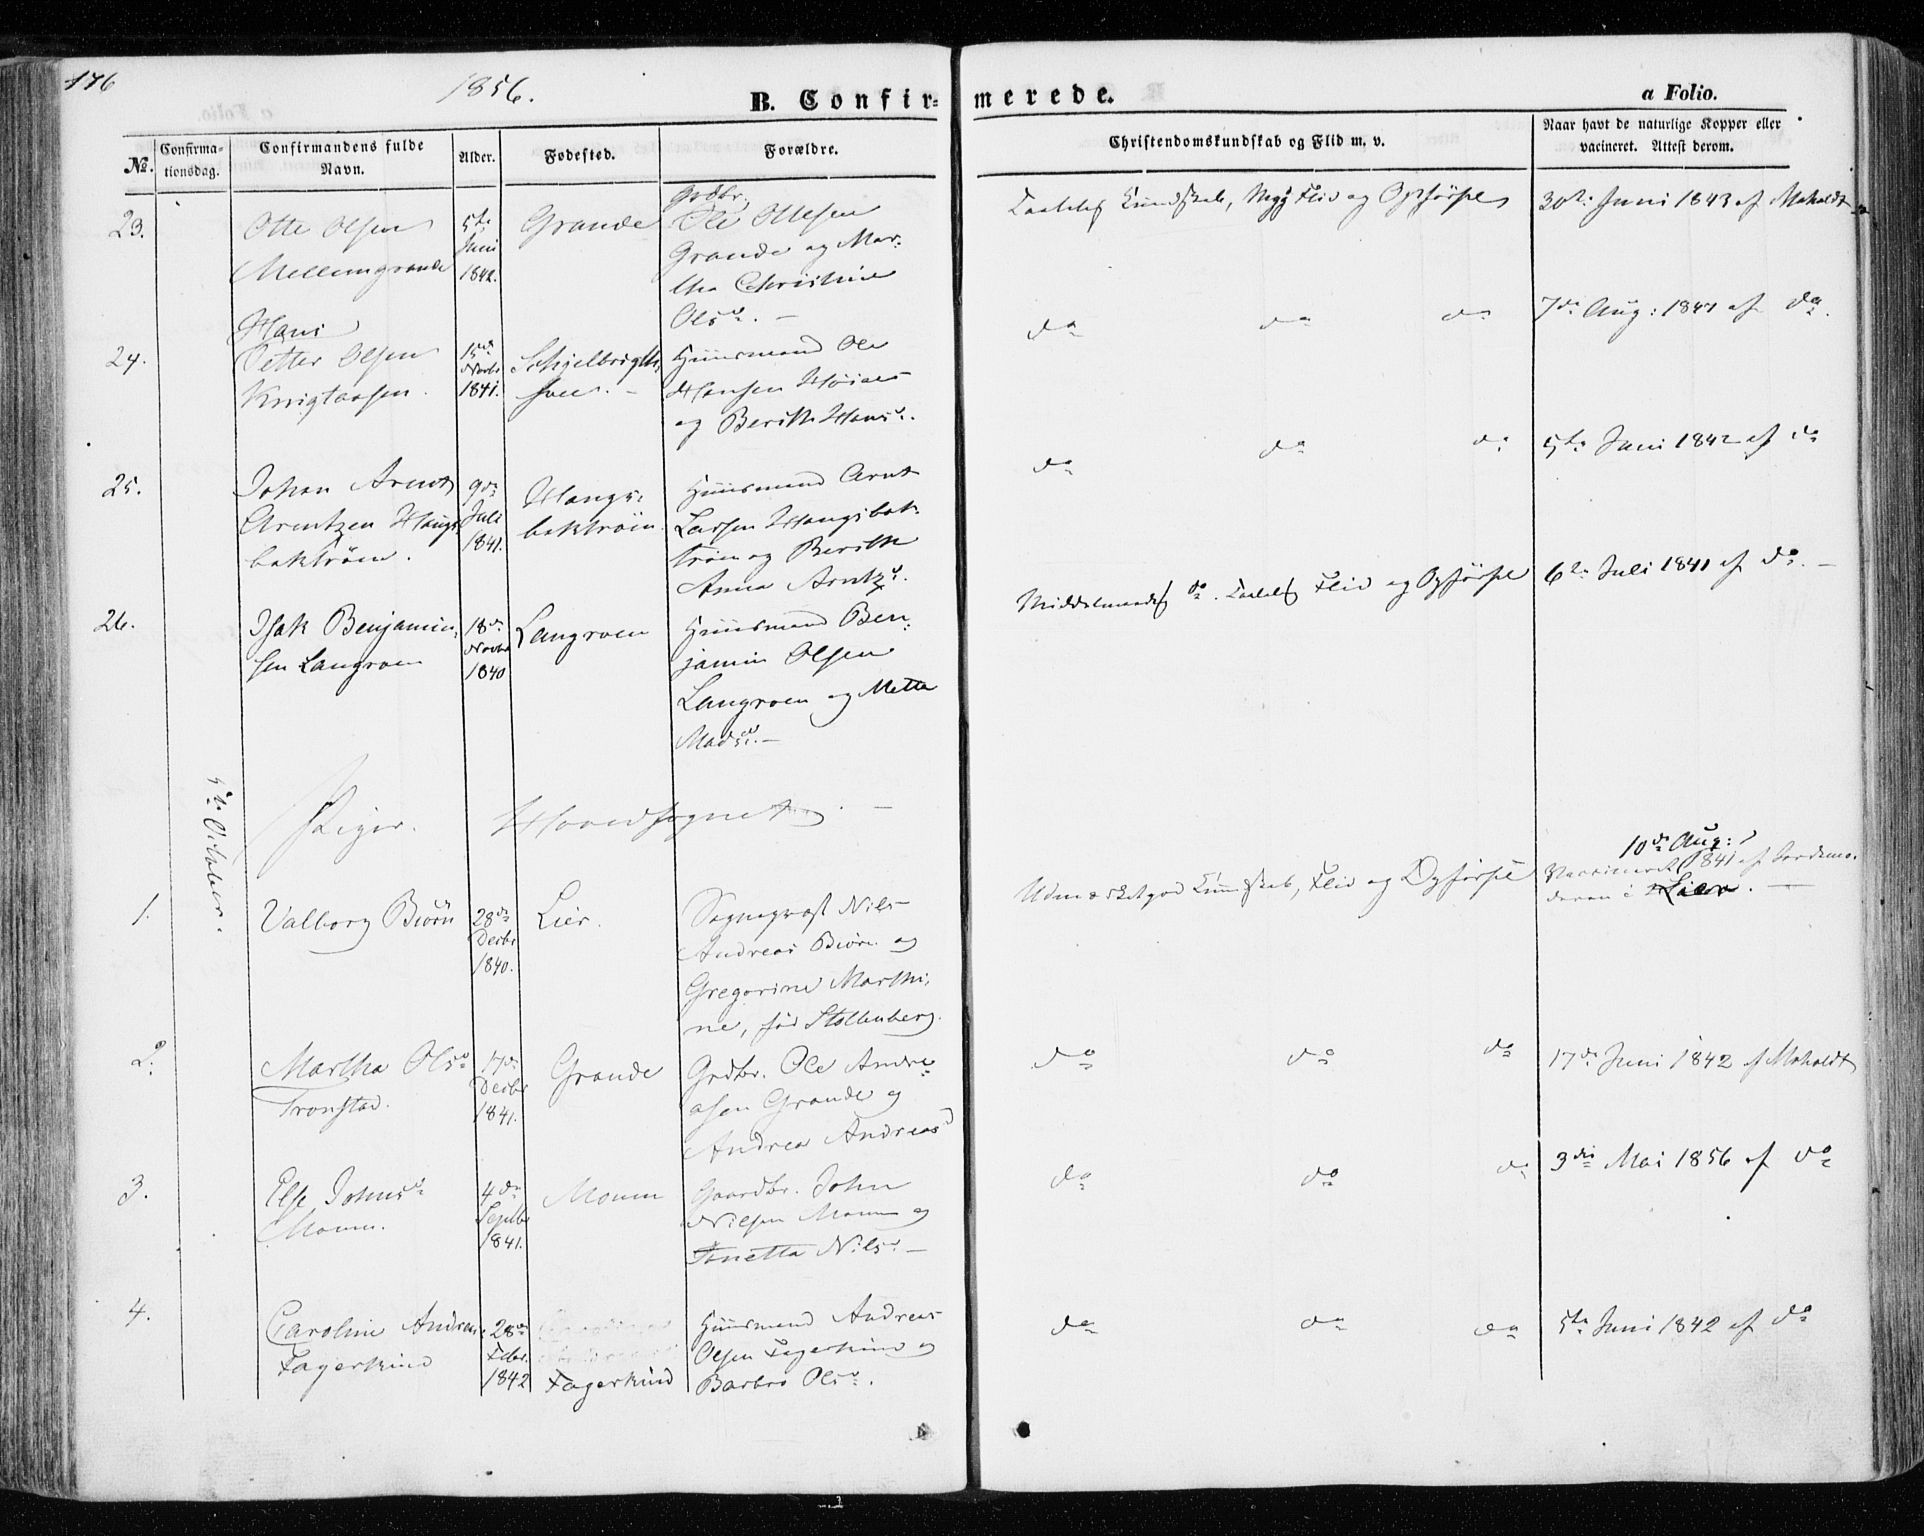 176
1856.
B. Confir-
merede.
a Folio.
No.
Confirma-
tionsdag.
Confirmandens fulde
Navn.
Alder.
Fødested.
Forældre.
Christendomskundskab og Flid m. v.
Naar havt de naturlige Kopper eller
vacineret. Attest derom.
23.
Otte Olsen
Mellemgrande
5te
Juni
1842.
Grande
Grdbr.
Ole Ottesen
Grande og Mar-
tha Christine
Olsd. —
Kundskab, Flid og Opførsel
30te Juni 1843 af Moholdt
24.
Hans
Petter Olsen
15de
Novbr
1841.
Huusmand Ole
Hansen
og Berith Hansd.
do do do
7de Aug: 1841 af do.
25.
Johan Arnt
Arentzen Haugs-
baktrøen.
9de
Juli
1841.
Haugs-
baktrøen.
Huusmand Arnt
Larsen Haugsbak-
trøen og Berith
Anna Arntzd.
do do do
5te Juni 1842 af do
26.
Isak Benjamin-
sen Langroen
18de
Novbr
1840
Langroen
Huusmand Ben-
jamin Olsen
Langroen og Mette
Madsd. —
Middelmaades do. Flid og Opførsel
6te Juli 1841 af do. —
5te October.
Piger. Hovedsognet. —
1.
Valborg Biørn
28de
Decbr
1840.
Lier.
Sogneprost Nils
Andreas Biørn og
Gregorine Marthi-
ne, fød Stoltenberg.
Udmærketgod Kundskab, Flid og Opførsel
10de Aug:
Vaccineret 1841 af Jordemo-
deren i Lier. —
2.
Martha Olsd
Tronstad.
17de
Decbr
1841.
Grande
Grdbr. Ole Andre-
asen Grande og
Andrea Andreasd
do do do
17de Juni 1842 af Moholdt
3.
Else Johnsd.
Moum.
4de
Septbr
1841.
Moum
Gaardbr. John
Nilsen Moum og
Tonetta Nilsd. —
do do do
3die Mai 1856 af do
4.
Caroline Andreas-
Fagerkind
28de
Febr.
1842
Fagerkind
Huusmand Andreas
Olsen Fagerkind og
Barbro Olsd.
do do do
5te Juni 1842 af do